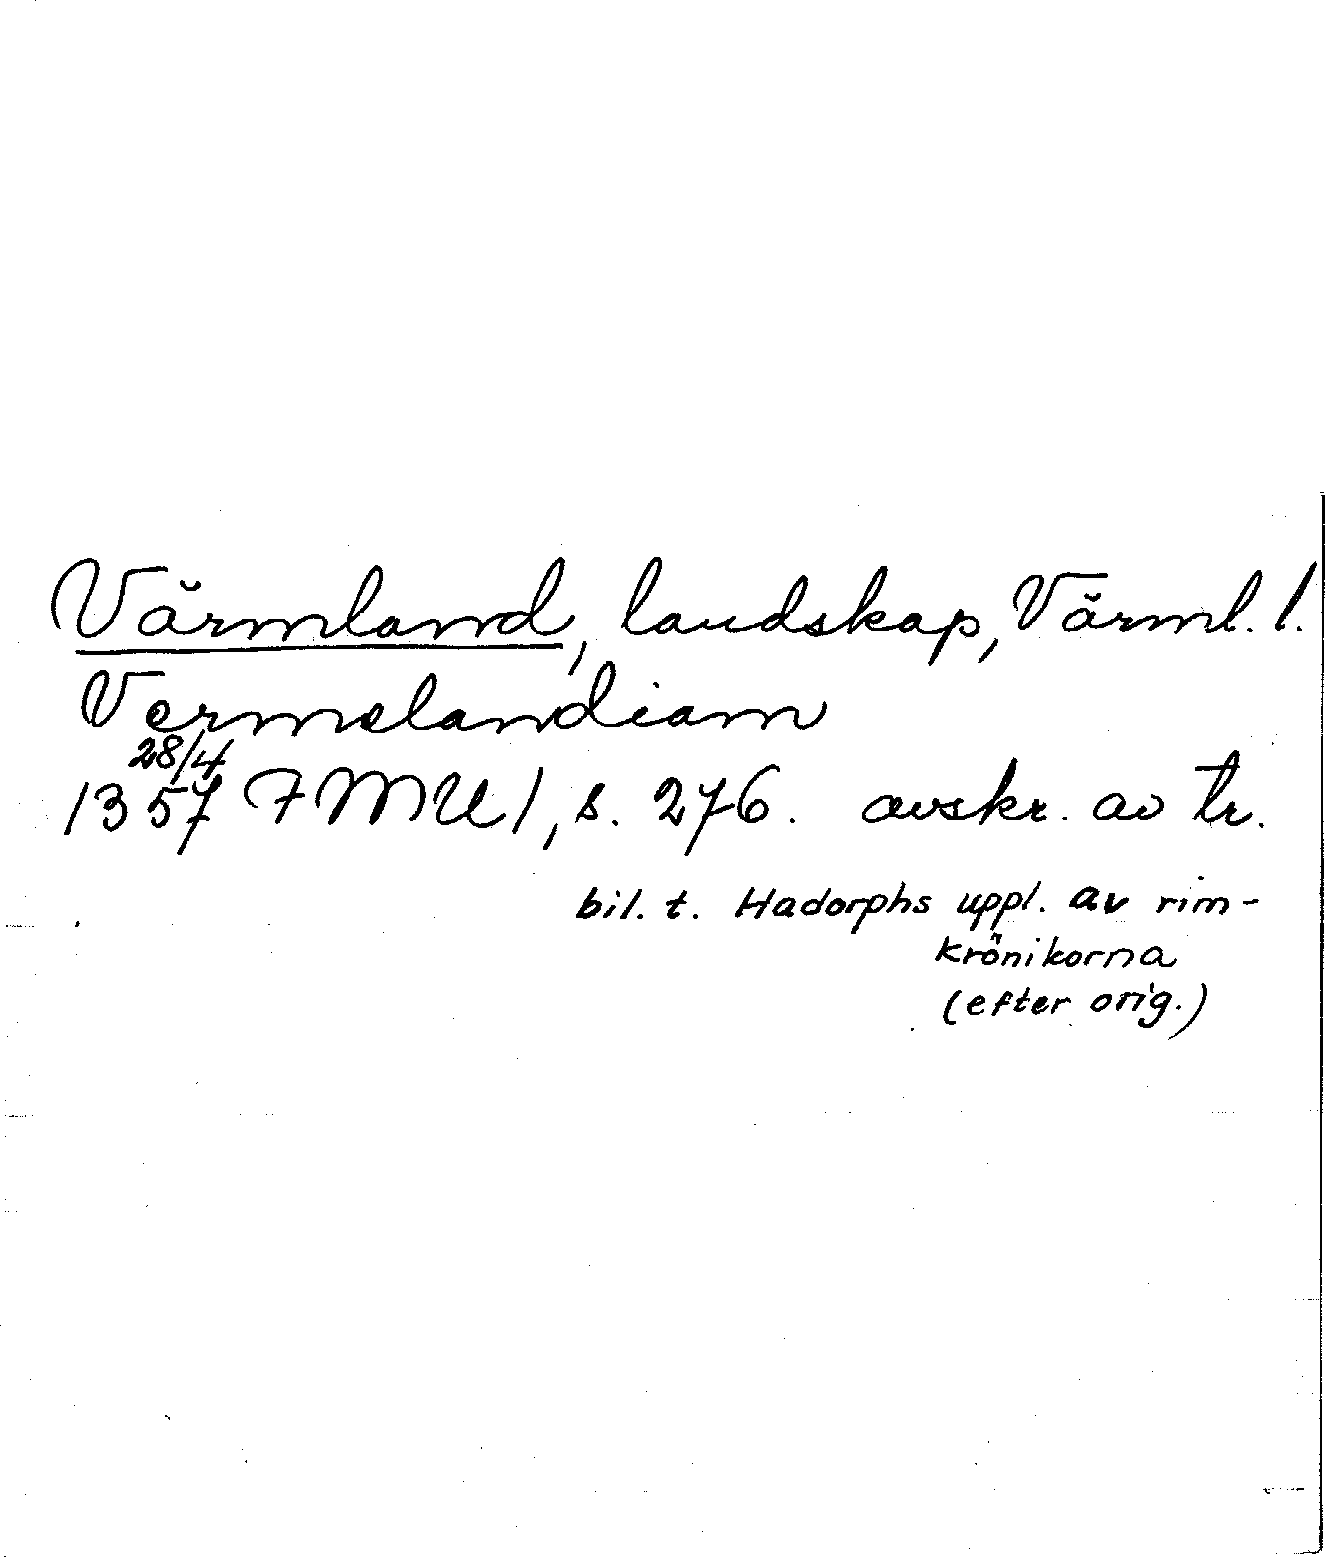 Värmland, landskap, Värml. l.
Vermelandiam
28/4
1357 FMU 1, s. 276. avskr. av tr.
bil. t. Hadorphs uppl. av rim-
krönikorna
(efter orig.)